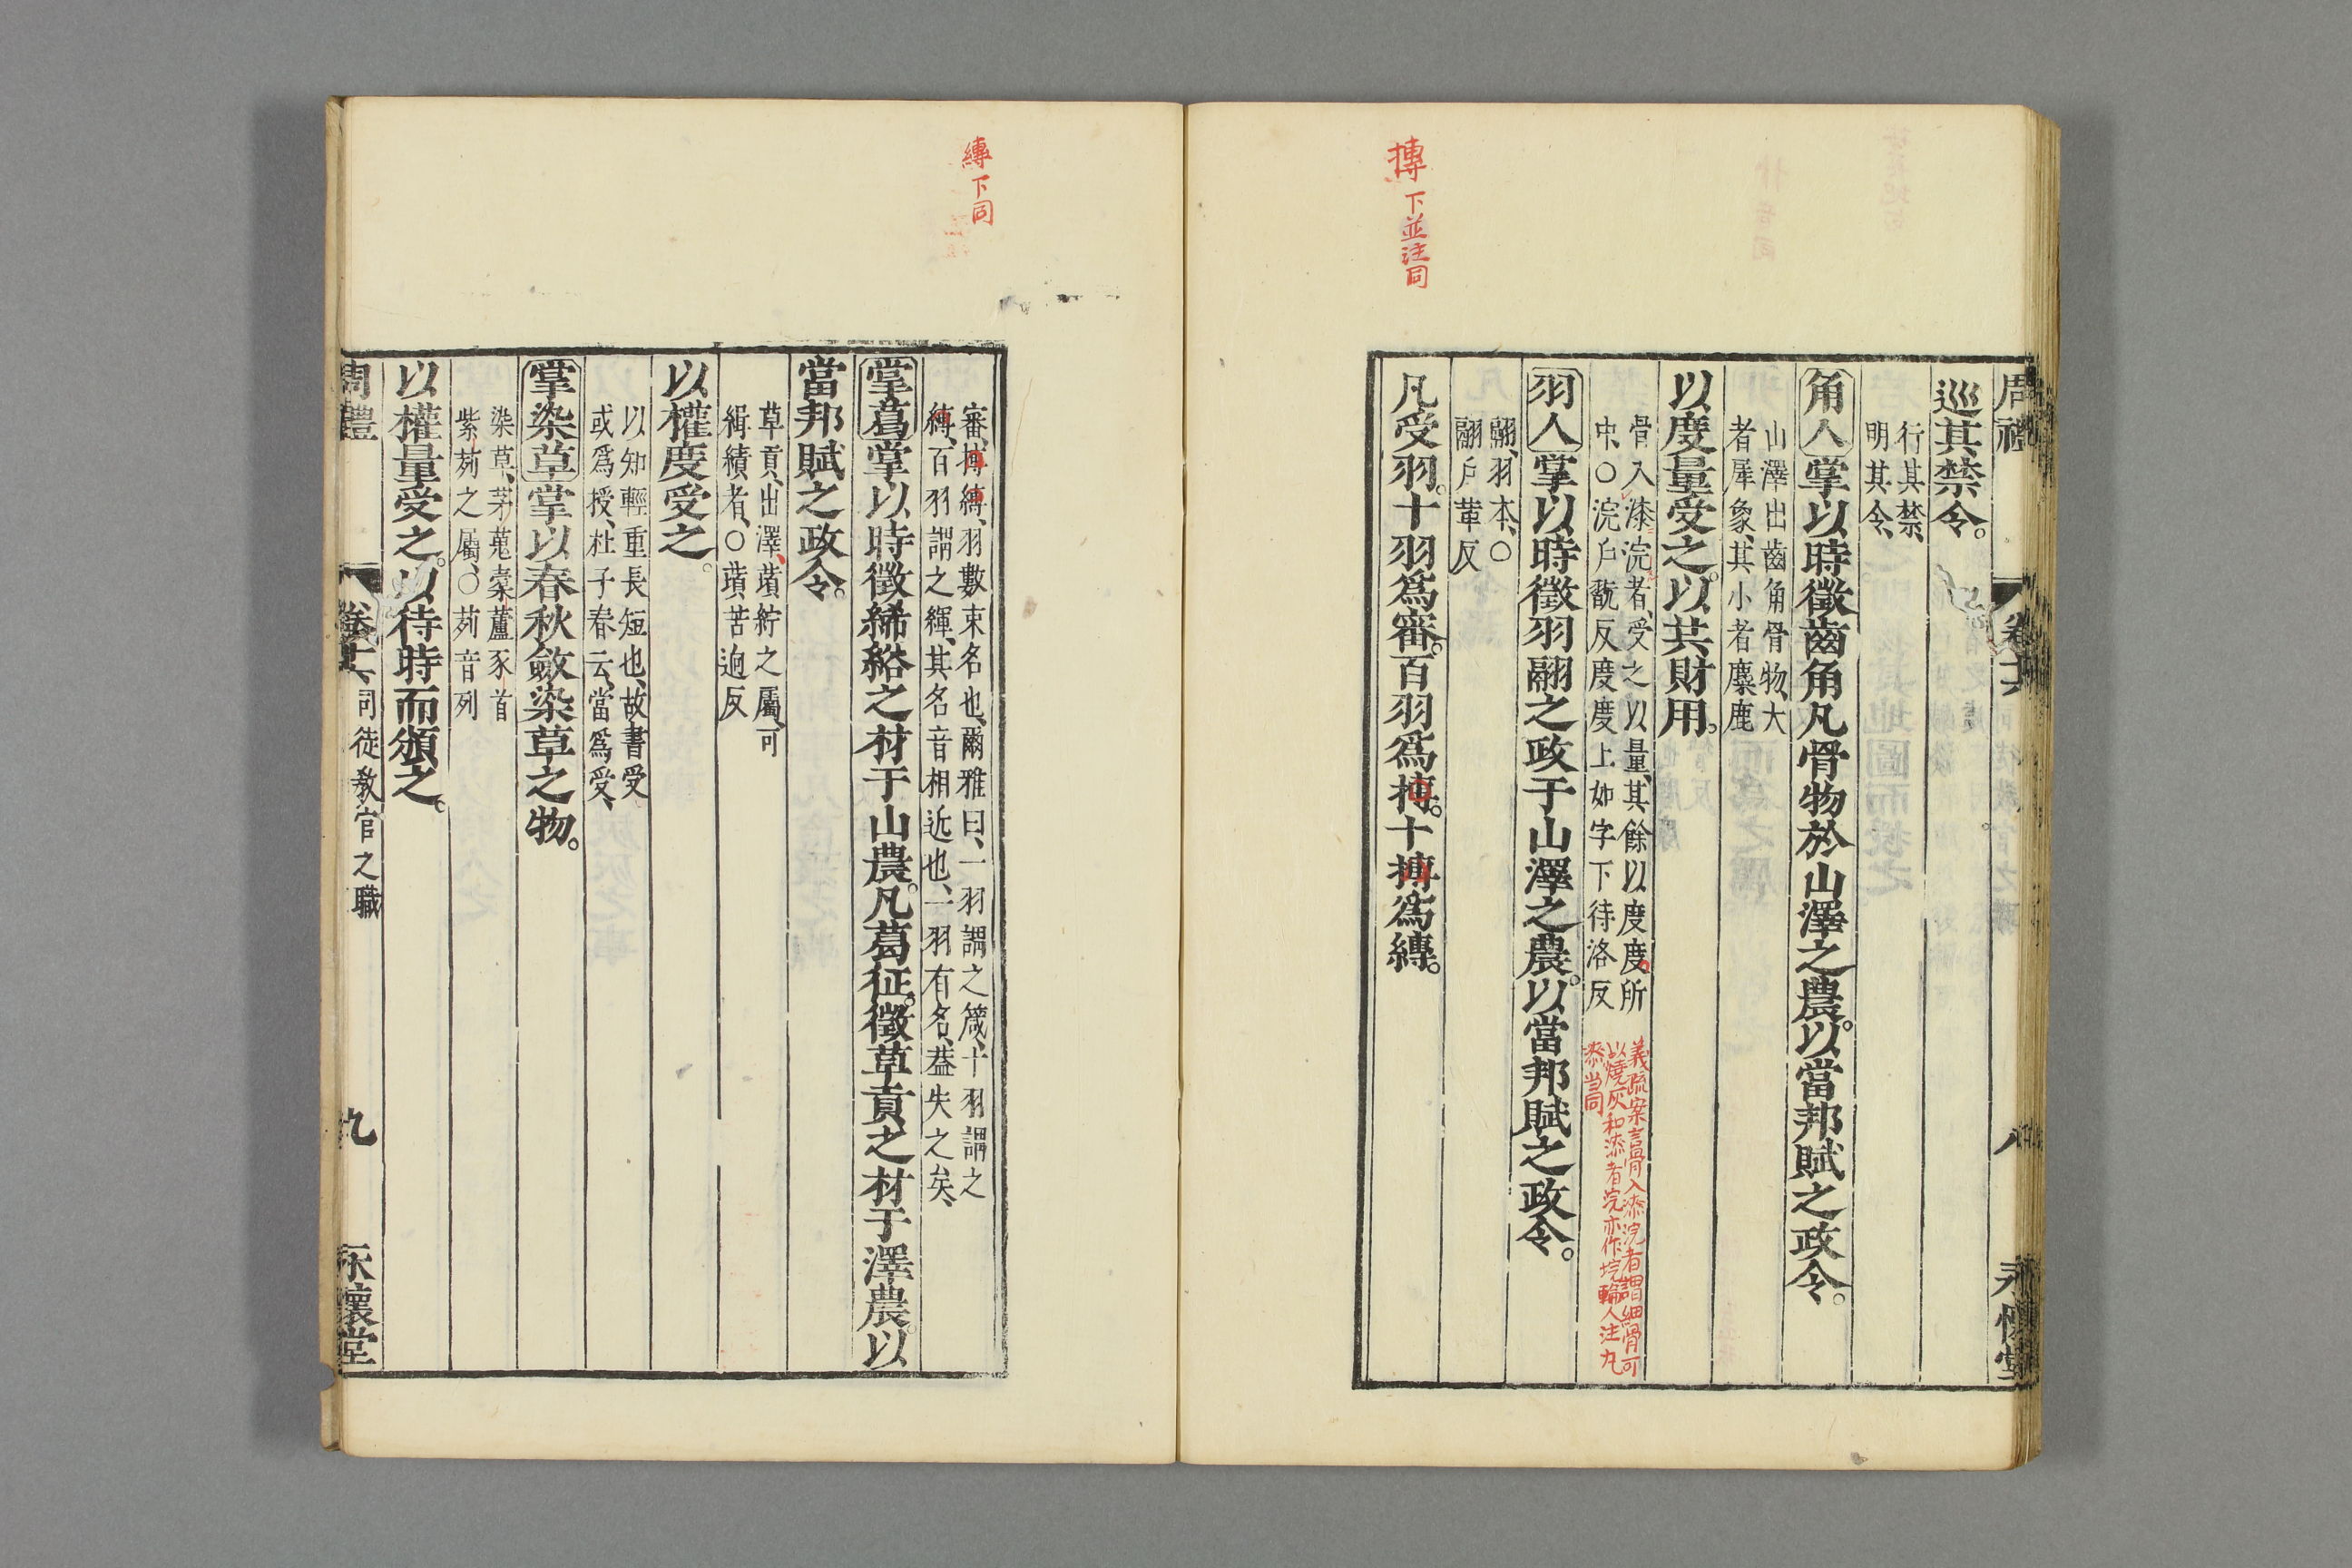 周禮 卷十六 八 永懷堂
巡其禁令。
行其禁、
明其令、
角人掌以時徵齒角凡骨物於山澤之農。以當邦賦之政令。
山澤出齒角骨物、大
者犀象、其小者麋鹿
以度量受之。以共財用。
骨入漆浣者、受之以量、其餘以度度所
中、○浣戶翫反度度上如字下待洛反
義疏案言骨入漆浣者謂細骨可
以燒灰和漆者浣亦作垸輪人注丸
漆当同
羽人掌以時徵羽翮之政于山澤之農。以當邦賦之政令。
翮、羽本、○
翮戶革反
凡受羽。十羽爲審。百羽爲摶。十摶爲縳。
摶 下並注同
縳 下同
審、摶縳、羽數束名也、爾雅曰、一羽謂之箴、十羽謂之
縳、百羽謂之緷、其名音相近也、一羽有名、蓋失之矣、
掌葛掌以時徵絺綌之材于山農。凡葛征。徵草貢之材于澤農。以
當邦賦之政令。
草貢、出澤、蕡紵之屬、可
緝績者、○蕡苦迥反
以權度受之。
以知輕重長短也、故書受
或爲授、杜子春云、當爲受、
掌染草掌以春秋斂染草之物。
染草、茅蒐橐蘆豕首
紫茢之屬、○茢音列
以權量受之。以待時而頒之。
周禮 卷十六 司徒教官之職 九 永懷堂